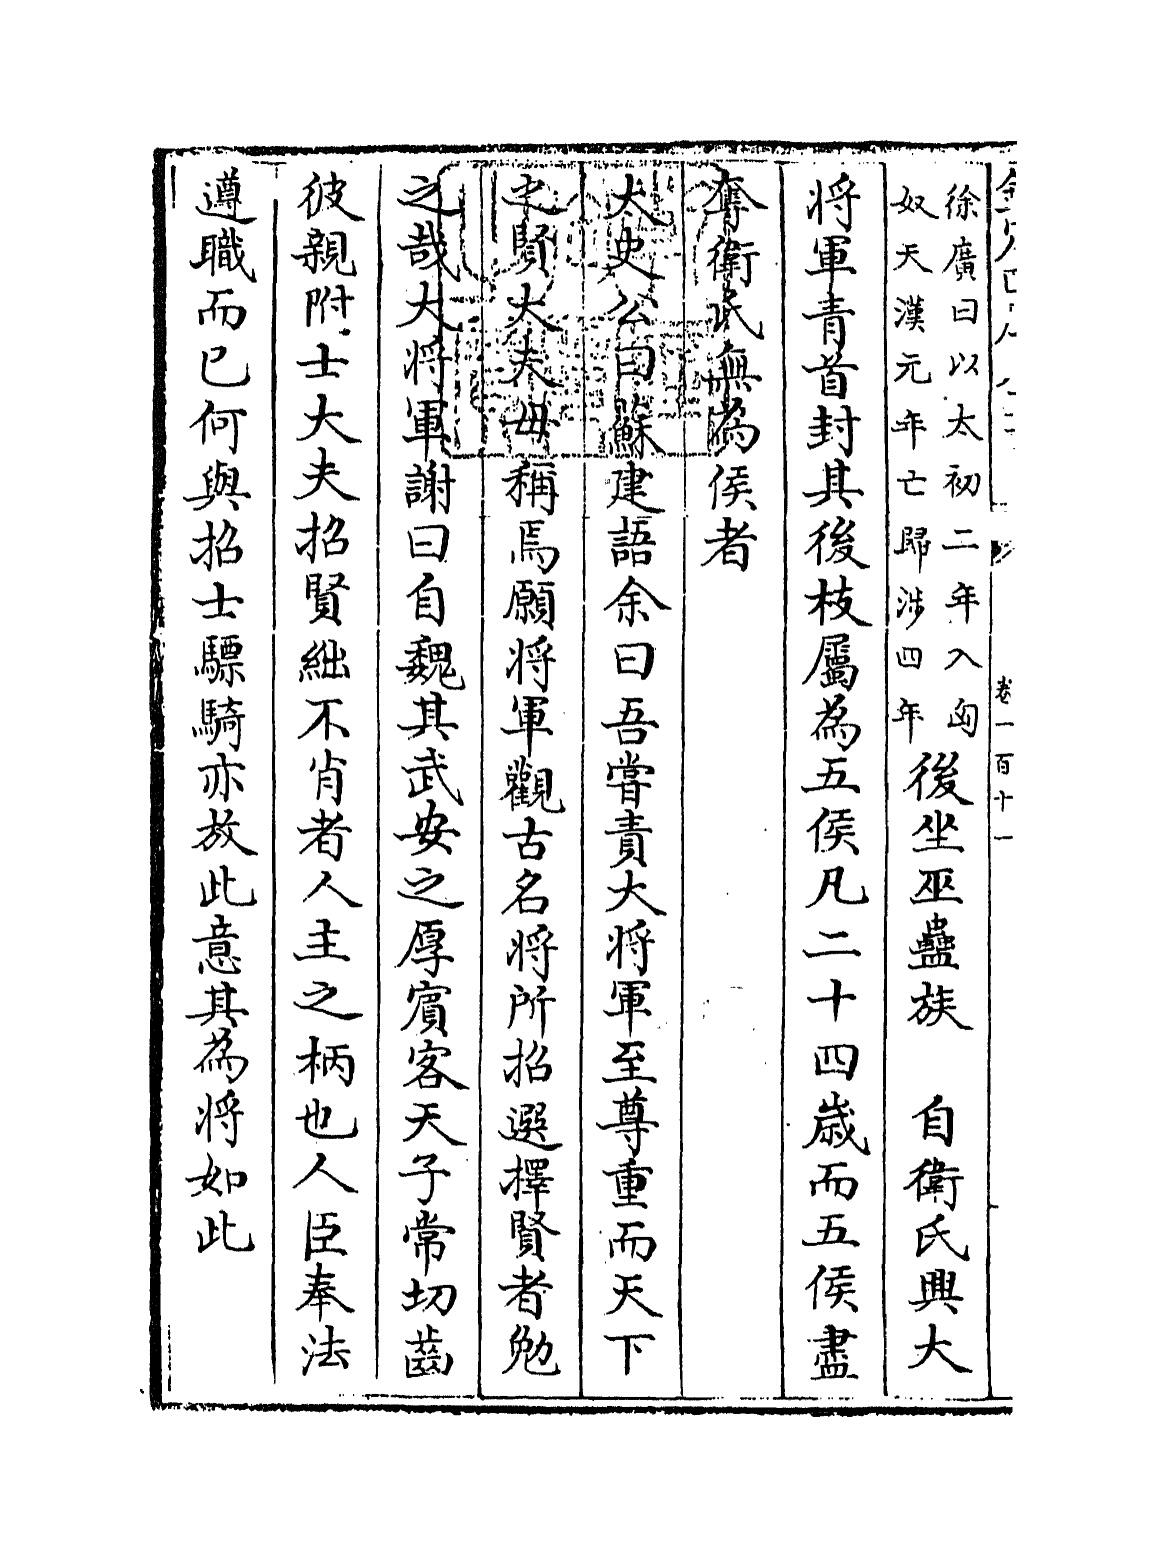 欽定四庫全書
卷一百十一
徐廣曰以太初二年入匈
奴天漢元年亡歸涉四年
後坐巫蠱族　自衛氏興大
将軍青首封其後枝屬為五侯凡二十四歲而五侯盡
奪衛氏無為侯者
太史公曰蘇建語余曰吾嘗責大将軍至尊重而天下
之賢大夫毋稱焉願将軍觀古名将所招選擇賢者勉
之哉大将軍謝曰自魏其武安之厚賓客天子常切齒
彼親附士大夫招賢絀不肖者人主之柄也人臣奉法
遵職而已何與招士驃騎亦放此意其為将如此